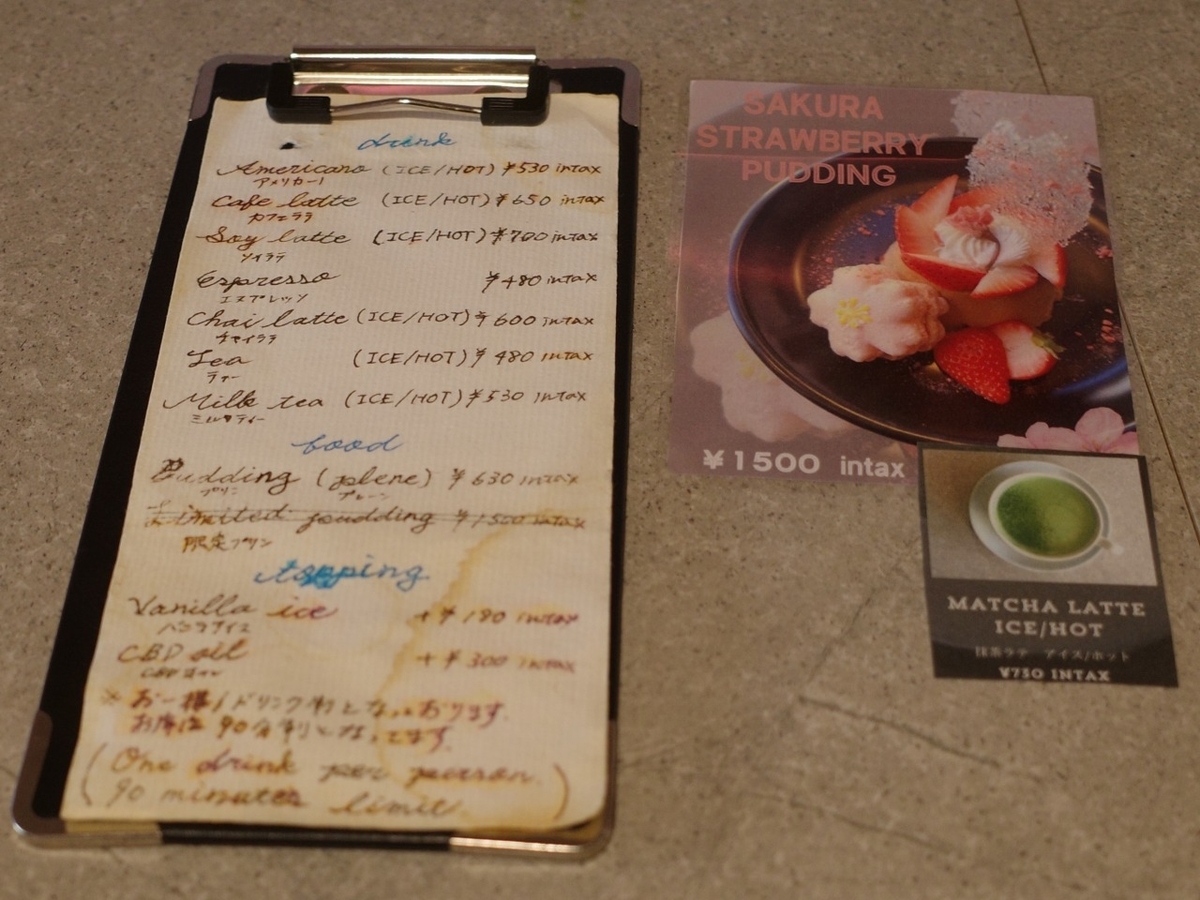 drink
Americano (ICE/HOT) ¥530 intax
アメリカーノ
Cafe latte (ICE/HOT) ¥650 intax
カフェラテ
Soy latte (ICE/HOT) ¥700 intax
ソイラテ
Espresso ¥480 intax
エスプレッソ
Chai latte (ICE/HOT) ¥600 intax
チャイラテ
Tea (ICE/HOT) ¥480 intax
ティー
Milk tea (ICE/HOT) ¥530 intax
ミルクティー
food
Pudding (plene) ¥630 intax
プリン プレーン
Limited pudding ¥1500 intax
限定プリン
topping
Vanilla ice +¥180 intax
バニラアイス
CBD oil +¥300 intax
CBDオイル
※お一様1ドリンク制となっております。
お席は90分制となってます。
(One drink per person.
90 minutes limit.)
SAKURA
STRAWBERRY
PUDDING
¥1500 intax
MATCHA LATTE
ICE/HOT
抹茶ラテ アイス/ホット
¥730 INTAX